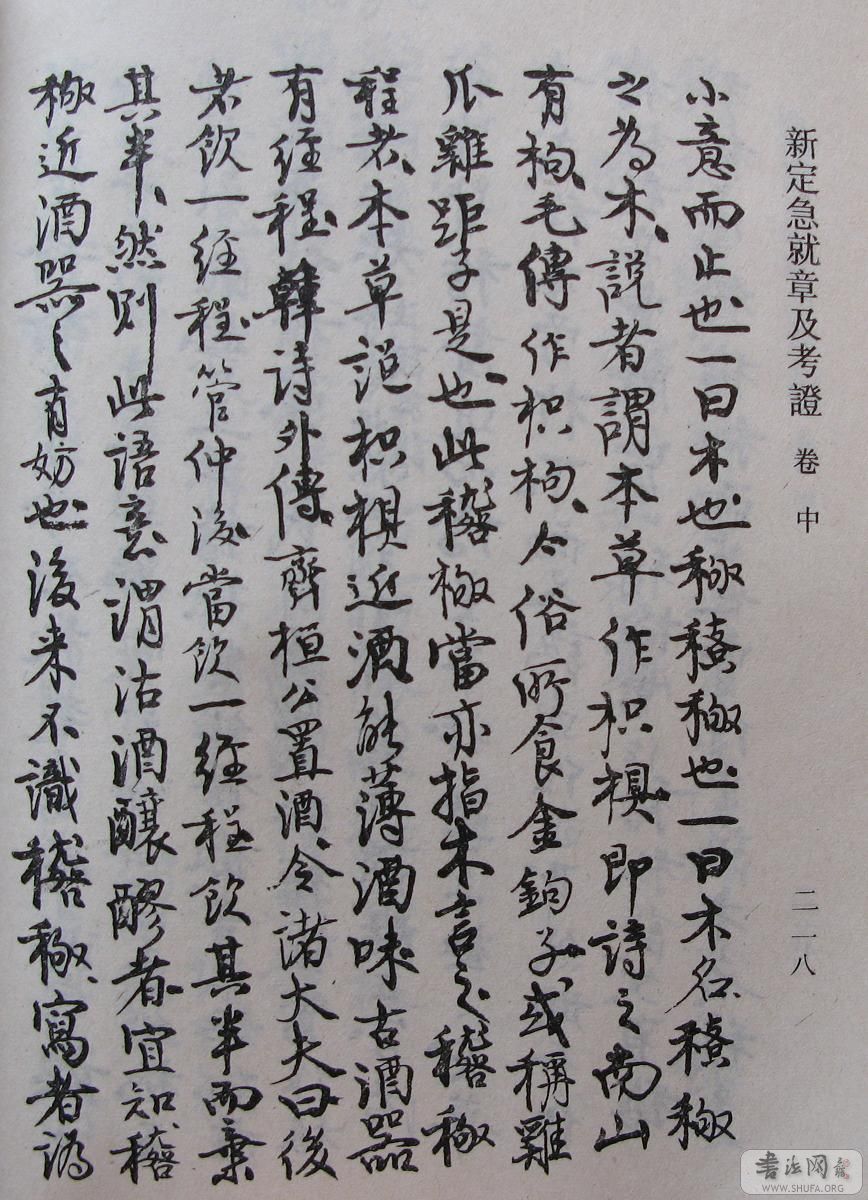 新定急就章及考證 卷中 二一八
小意而止也一曰木也䅩𥠻䅩也一曰木名𥠻䅩
之為木說者謂本草作枳椇即詩之南山
有枸毛傳作枳枸今俗所食金鉤子或稱雞
爪雞距子是也此稽䅩當亦指木言之稽䅩
程者本草説枳椇近酒能薄酒味古酒器
有經程韓詩外傳齊桓公置酒令諸大夫曰後
者飲一經程管仲後當飲一經程飲其半而棄
其半然則此語意謂沽酒釀醪者宜知稽
䅩近酒器之有妨也後来不識稽䅩寫者譌
書法网
WWW.SHUFA.ORG